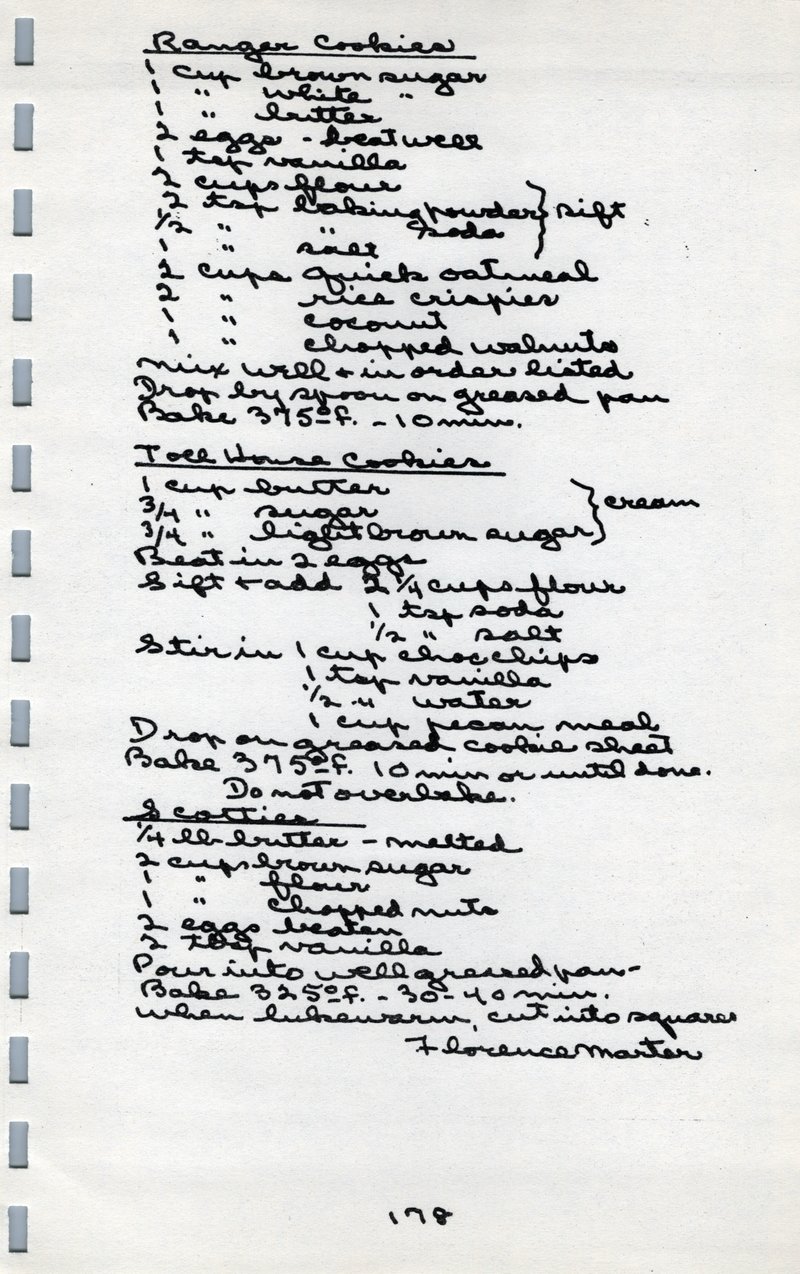 Ranger Cookies
1 cup brown sugar
1 " white "
1 " butter
2 eggs - beat well
1 tsp vanilla
2 cups flour
2 tsp baking powder } sift
1/2 " " soda
1 " salt
2 cups quick oatmeal
2 " rice crispies
1 " coconut
1 " chopped walnuts
Mix well + in order listed
Drop by spoon on greased pan
Bake 375° f. - 10 min.
Toll House Cookies
1 cup butter } cream
3/4 " sugar
3/4 " light brown sugar
Beat in 2 eggs
Sift + add 2 1/4 cups flour
1 tsp soda
1/2 " salt
Stir in 1 cup choc chips
1 tsp vanilla
1/2 " water
1 cup pecan meal
Drop on greased cookie sheet
Bake 375° f. 10 min or until done.
Do not overbake.
Scotties
1/4 lb butter - melted
2 cups brown sugar
1 " flour
1 " chopped nuts
2 eggs beaten
2 vanilla
Pour into well greased pan -
Bake 325° f. - 30-40 min.
When lukewarm, cut into squares
Florence Marter
178